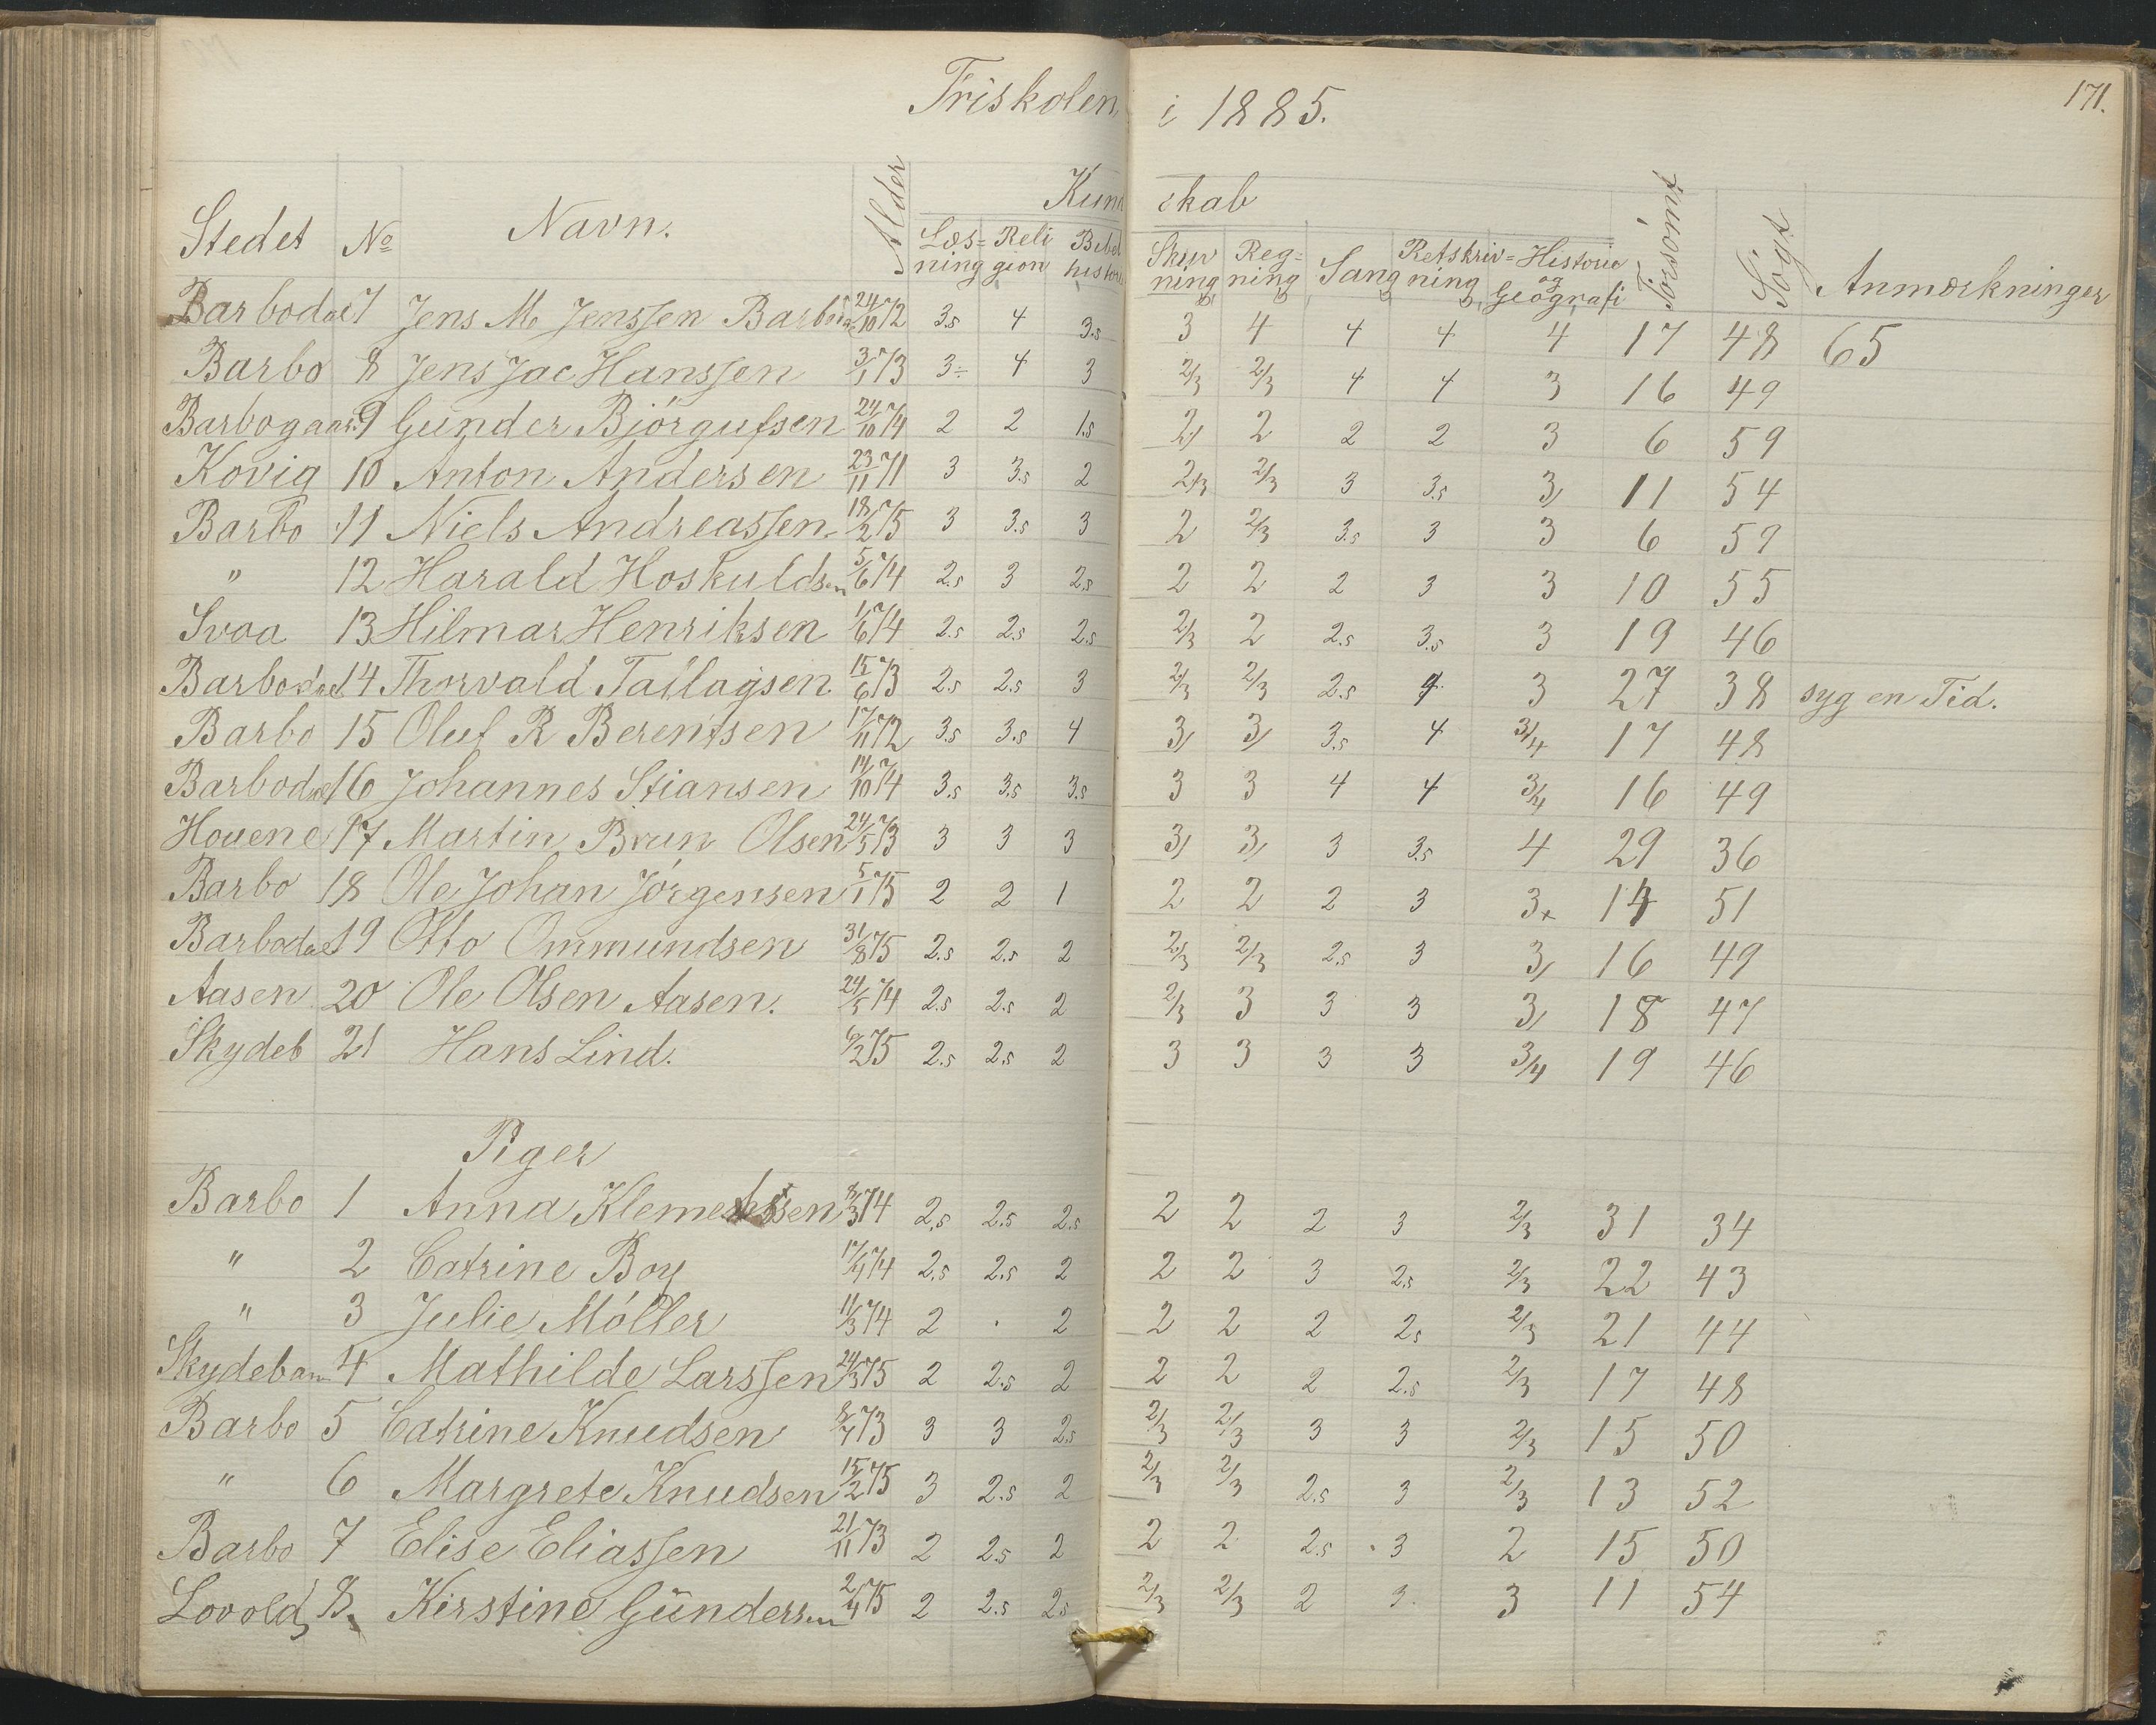 Friskolen i 1885.
171.
Kundskab
Stedet No Navn. Alder Læs=ning Religion Bibelhistorie Skrivning Reg=ning Sang Retskriv=ning Historie og Geografi Forsömt Sögt Anmærkninger
Barbodal 7 Jens M. Jenssen 24/10 72 3.5 4 3.5 3 4 4 4 4 17 48 65
Barbo 8 Jens Jac Hanssen 3/1 73 3÷ 4 3 2/3 2/3 4 4 3 16 49
Barbogaar. 9 Gunder Björgufsen 24/10 74 2 2 1.5 2/ 2 2 2 3 6 59
Kovig 10 Anton Andersen 23/11 71 3 3.5 2 2/3 2/3 3 3.5 3/ 11 54
Barbo 11 Niels Andreassen 18/2 75 3 3.5 3 2 2/3 3.5 3 3 6 59
" 12 Harald Hoskuldsen 5/6 74 2.5 3 2.5 2 2 2 3 3 10 55
Svaa 13 Hilmar Henriksen 1/6 74 2.5 2.5 2.5 2/3 2 2.5 3.5 3 19 46
Barbodal 14 Thorvald Tallagsen 15/6 73 2.5 2.5 3 2/3 2/3 2.5 4 3 27 38 syg en Tid.
Barbo 15 Oluf R Berentsen 17/11 72 3.5 3.5 4 3/ 3/ 3.5 4 3/4 17 48
Barbodal 16 Johannes Stiansen 14/10 74 3.5 3.5 3.5 3 3 4 4 3/4 16 49
Houene 17 Martin Brun Olsen 24/5 73 3 3 3 3/ 3/ 3 3.5 4 29 36
Barbo 18 Ole Johan Jörgensen 5/1 75 2 2 1 2 2 2 3 3+ 14 51
Barbodal 19 Otto Ommundsen 31/8 75 2.5 2.5 2 2/3 2/3 2.5 3 3/ 16 49
Aasen 20 Ole Olsen Aasen. 24/5 74 2.5 2.5 2 2/3 3 3 3 3/ 18 47
Skydeb 21 Hans Lind. 6/2 75 2.5 2.5 2 3 3 3 3 3/4 19 46
Piger
Barbo 1 Anna Klementsen 8/3 74 2.5 2.5 2.5 2 2 2 3 2/3 31 34
" 2 Catrine Boy 17/4 74 2.5 2.5 2 2 2 3 2.5 2/3 22 43
" 3 Julie Möller 11/3 74 2 . 2 2 2 2 2.5 2/3 21 44
Skydeban 4 Mathilde Larssen 24/3 75 2 2.5 2 2 2 2 2.5 2/3 17 48
Barbo 5 Catrine Knudsen 8/7 73 3 3 2.5 2/3 2/3 3 3 2/3 15 50
" 6 Margrete Knudsen 15/2 75 3 2.5 2 2/3 2/3 2.5 3 2/3 13 52
Barbo 7 Elise Eliassen 21/11 73 2 2.5 2 2 2 2.5 3 2 15 50
Lovold 8 Kirstine Gundersen 2/4 75 2 2.5 2.5 2/3 2/3 2 3 3 11 54